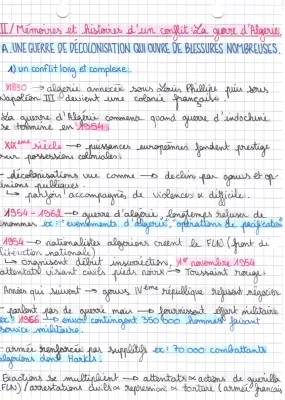 II/ Mémoires et histoires d'un conflit : La guerre d'Algérie.
A. UNE GUERRE DE DÉCOLONISATION QUI OUVRE DE BLESSURES NOMBREUSES.
1) un conflit long et complexe.
1830 → algérie annexée sous Louis Phillipe puis sous
Napoléon III devient une colonie française.
La guerre d'Algérie commence quand guerre d'indochine
se termine en 1954
XIXème siècle → puissances européennes fondent prestige
sur possessions coloniales.
décolonisations vue comme → déclin par gouvs et op-
inions publiques.
↳ parfois accompagnés de violences & difficile.
1954 - 1962 → guerre d'algérie longtemps refuser de
nommer ex : "evenements d'algérie", "opérations de pacification"
1954 → nationalistes algériens créent le FLN (front de
libération nationale)
↳ organisent début insurrection, 1er novembre 1954
attentats visant civils pieds noirs → Toussaint rouge.
Années qui suivent → gouvs IVème république refusent négocier
parlent pas de guerre mais → fournissent effort militaire
ex : 1956 → envoi contingent 350 000 hommes faisant
service militaire.
armée renforcée par supplétifs ex : 70 000 combattants
algériens dont Harkis.
Exactions se multiplient → attentats & actions de guérilla
(FLN) / arrestations civils & repression & torture (armée française